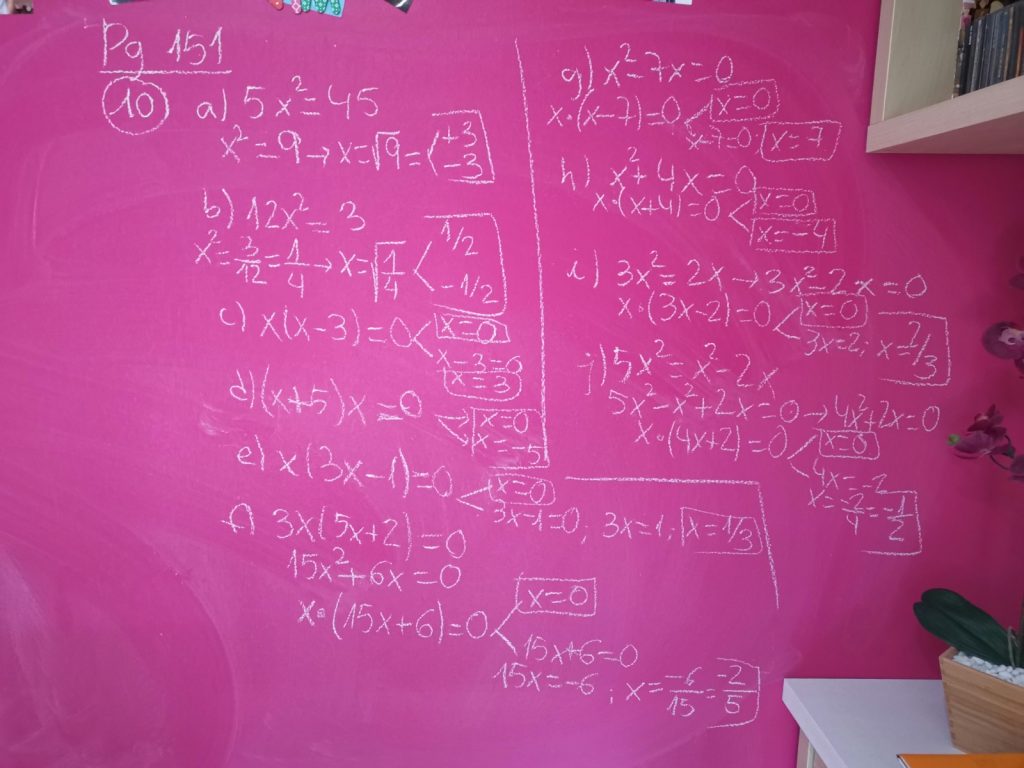 Pg 151
10 a) 5x²=45
x²=9→x=√9= +3
-3
b) 12x²=3
x²=3/12=1/4→x=√1/4 1/2
-1/2
c) x(x-3)=0 x=0
x-3=0
x=3
d) (x+5)x=0
x=0
x=-5
e) x(3x-1)=0 x=0
3x-1=0; 3x=1; x=1/3
f) 3x(5x+2)=0
15x²+6x=0
x·(15x+6)=0 x=0
15x+6=0
15x=-6; x=-6/15=-2/5
g) x²-7x=0
x·(x-7)=0 x=0
x-7=0 x=7
h) x²+4x=0
x·(x+4)=0 x=0
x=-4
i) 3x²=2x→3x²-2x=0
x·(3x-2)=0 x=0
3x=2; x=2/3
j) 5x²=x²-2x
5x²-x²+2x=0→4x²+2x=0
x·(4x+2)=0 x=0
4x=-2
x=-2/4=-1/2